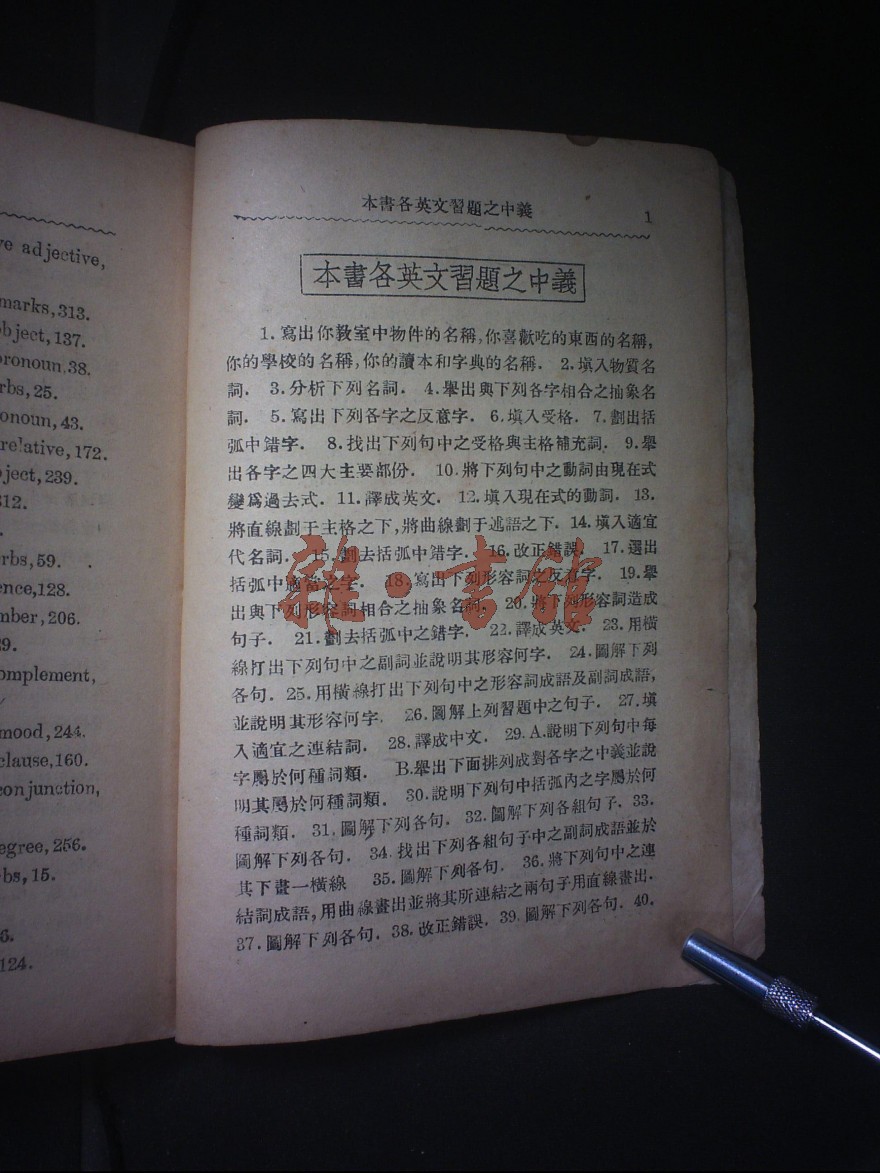 ve adjective,
marks,313.
bject,137.
pronoun,38.
rbs,25.
onoun,43.
relative,172.
ject,239.
312.
rbs,59.
ence,128.
mber,206.
29.
omplement,
mood,244.
clause,160.
conjunction,
egree,256.
bs,15.
6.
124.
本書各英文習題之中義 1
本書各英文習題之中義
1.寫出你教室中物件的名稱,你喜歡吃的東西的名稱,
你的學校的名稱,你的讀本和字典的名稱. 2.塡入物質名
詞. 3.分析下列名詞. 4.舉出與下列各字相合之抽象名
詞. 5.寫出下列各字之反意字. 6.塡入受格. 7.劃出括
弧中錯字. 8.找出下列句中之受格與主格補充詞. 9.舉
出各字之四大主要部份. 10.將下列句中之動詞由現在式
變爲過去式. 11.譯成英文. 12.塡入現在式的動詞. 13.
將直線劃于主格之下,將曲線劃于述語之下. 14.塡入適宜
代名詞. 15.劃去括弧中錯字. 16.改正錯誤. 17.選出
括弧中適當之字. 18.寫出下列形容詞之反意字. 19.舉
出與下列形容詞相合之抽象名詞. 20.將下列形容詞造成
句子. 21.劃去括弧中之錯字. 22.譯成英文. 23.用橫
線打出下列句中之副詞並說明其形容何字. 24.圖解下列
各句. 25.用橫線打出下列句中之形容詞成語及副詞成語,
並說明其形容何字. 26.圖解上列習題中之句子. 27.塡
入適宜之連結詞. 28.譯成中文. 29.A.說明下列句中每
字屬於何種詞類. B.舉出下面排列成對各字之中義並說
明其屬於何種詞類. 30.說明下列句中括弧內之字屬於何
種詞類. 31.圖解下列各句. 32.圖解下列各組句子. 33.
圖解下列各句. 34.找出下列各組句子中之副詞成語並於
其下畫一橫線 35.圖解下列各句. 36.將下列句中之連
結詞成語,用曲線畫出並將其所連結之兩句子用直線畫出.
37.圖解下列各句. 38.改正錯誤. 39.圖解下列各句. 40.
雜·書館